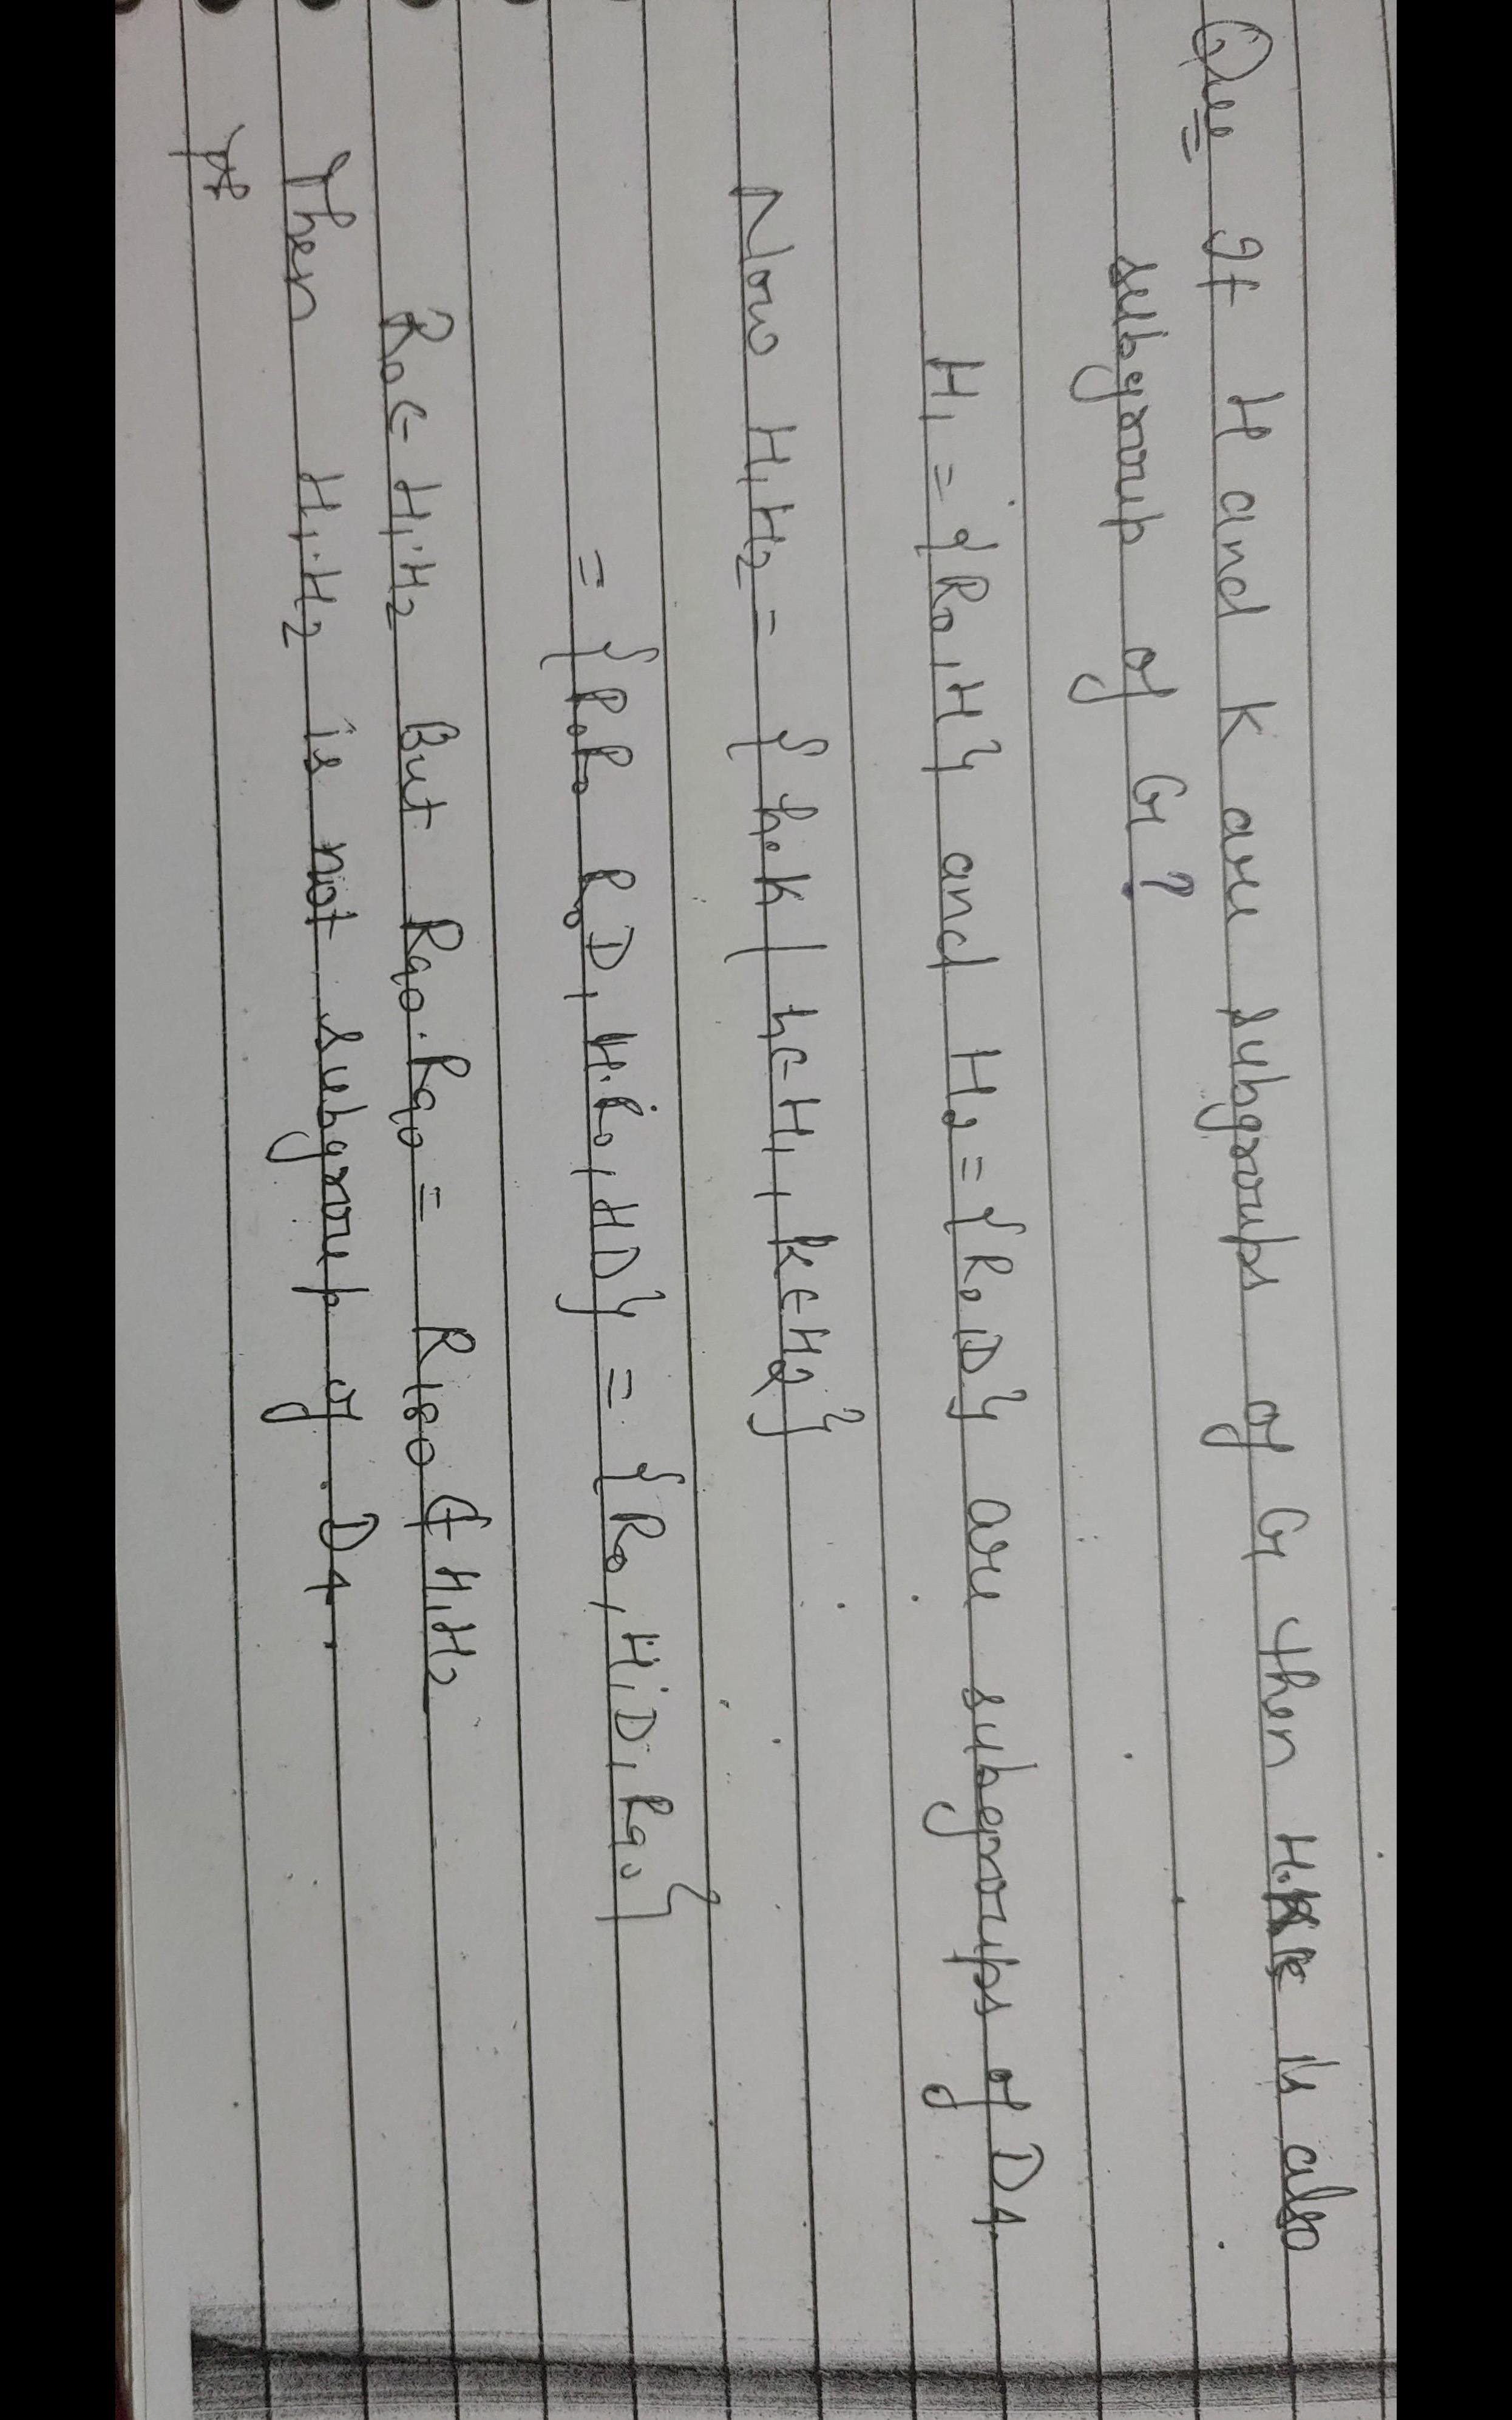 Que = If H and K are subgroups of G then H.K is also
subgroup of G?
H₁ = {R₀, H} and H₂ = {R₀ D} are subgroups of D4.
Now H₁H₂ = { h.k | h∈H₁, k∈H₂}
= {R₀R₀ R₀D, H.R₀, HD} = {R₀, H, D, R₉₀}
R₀∈ H₁.H₂ But R₉₀.R₉₀ = R₁₈₀ ∉ H₁H₂
Then H₁.H₂ is not subgroup of D4.